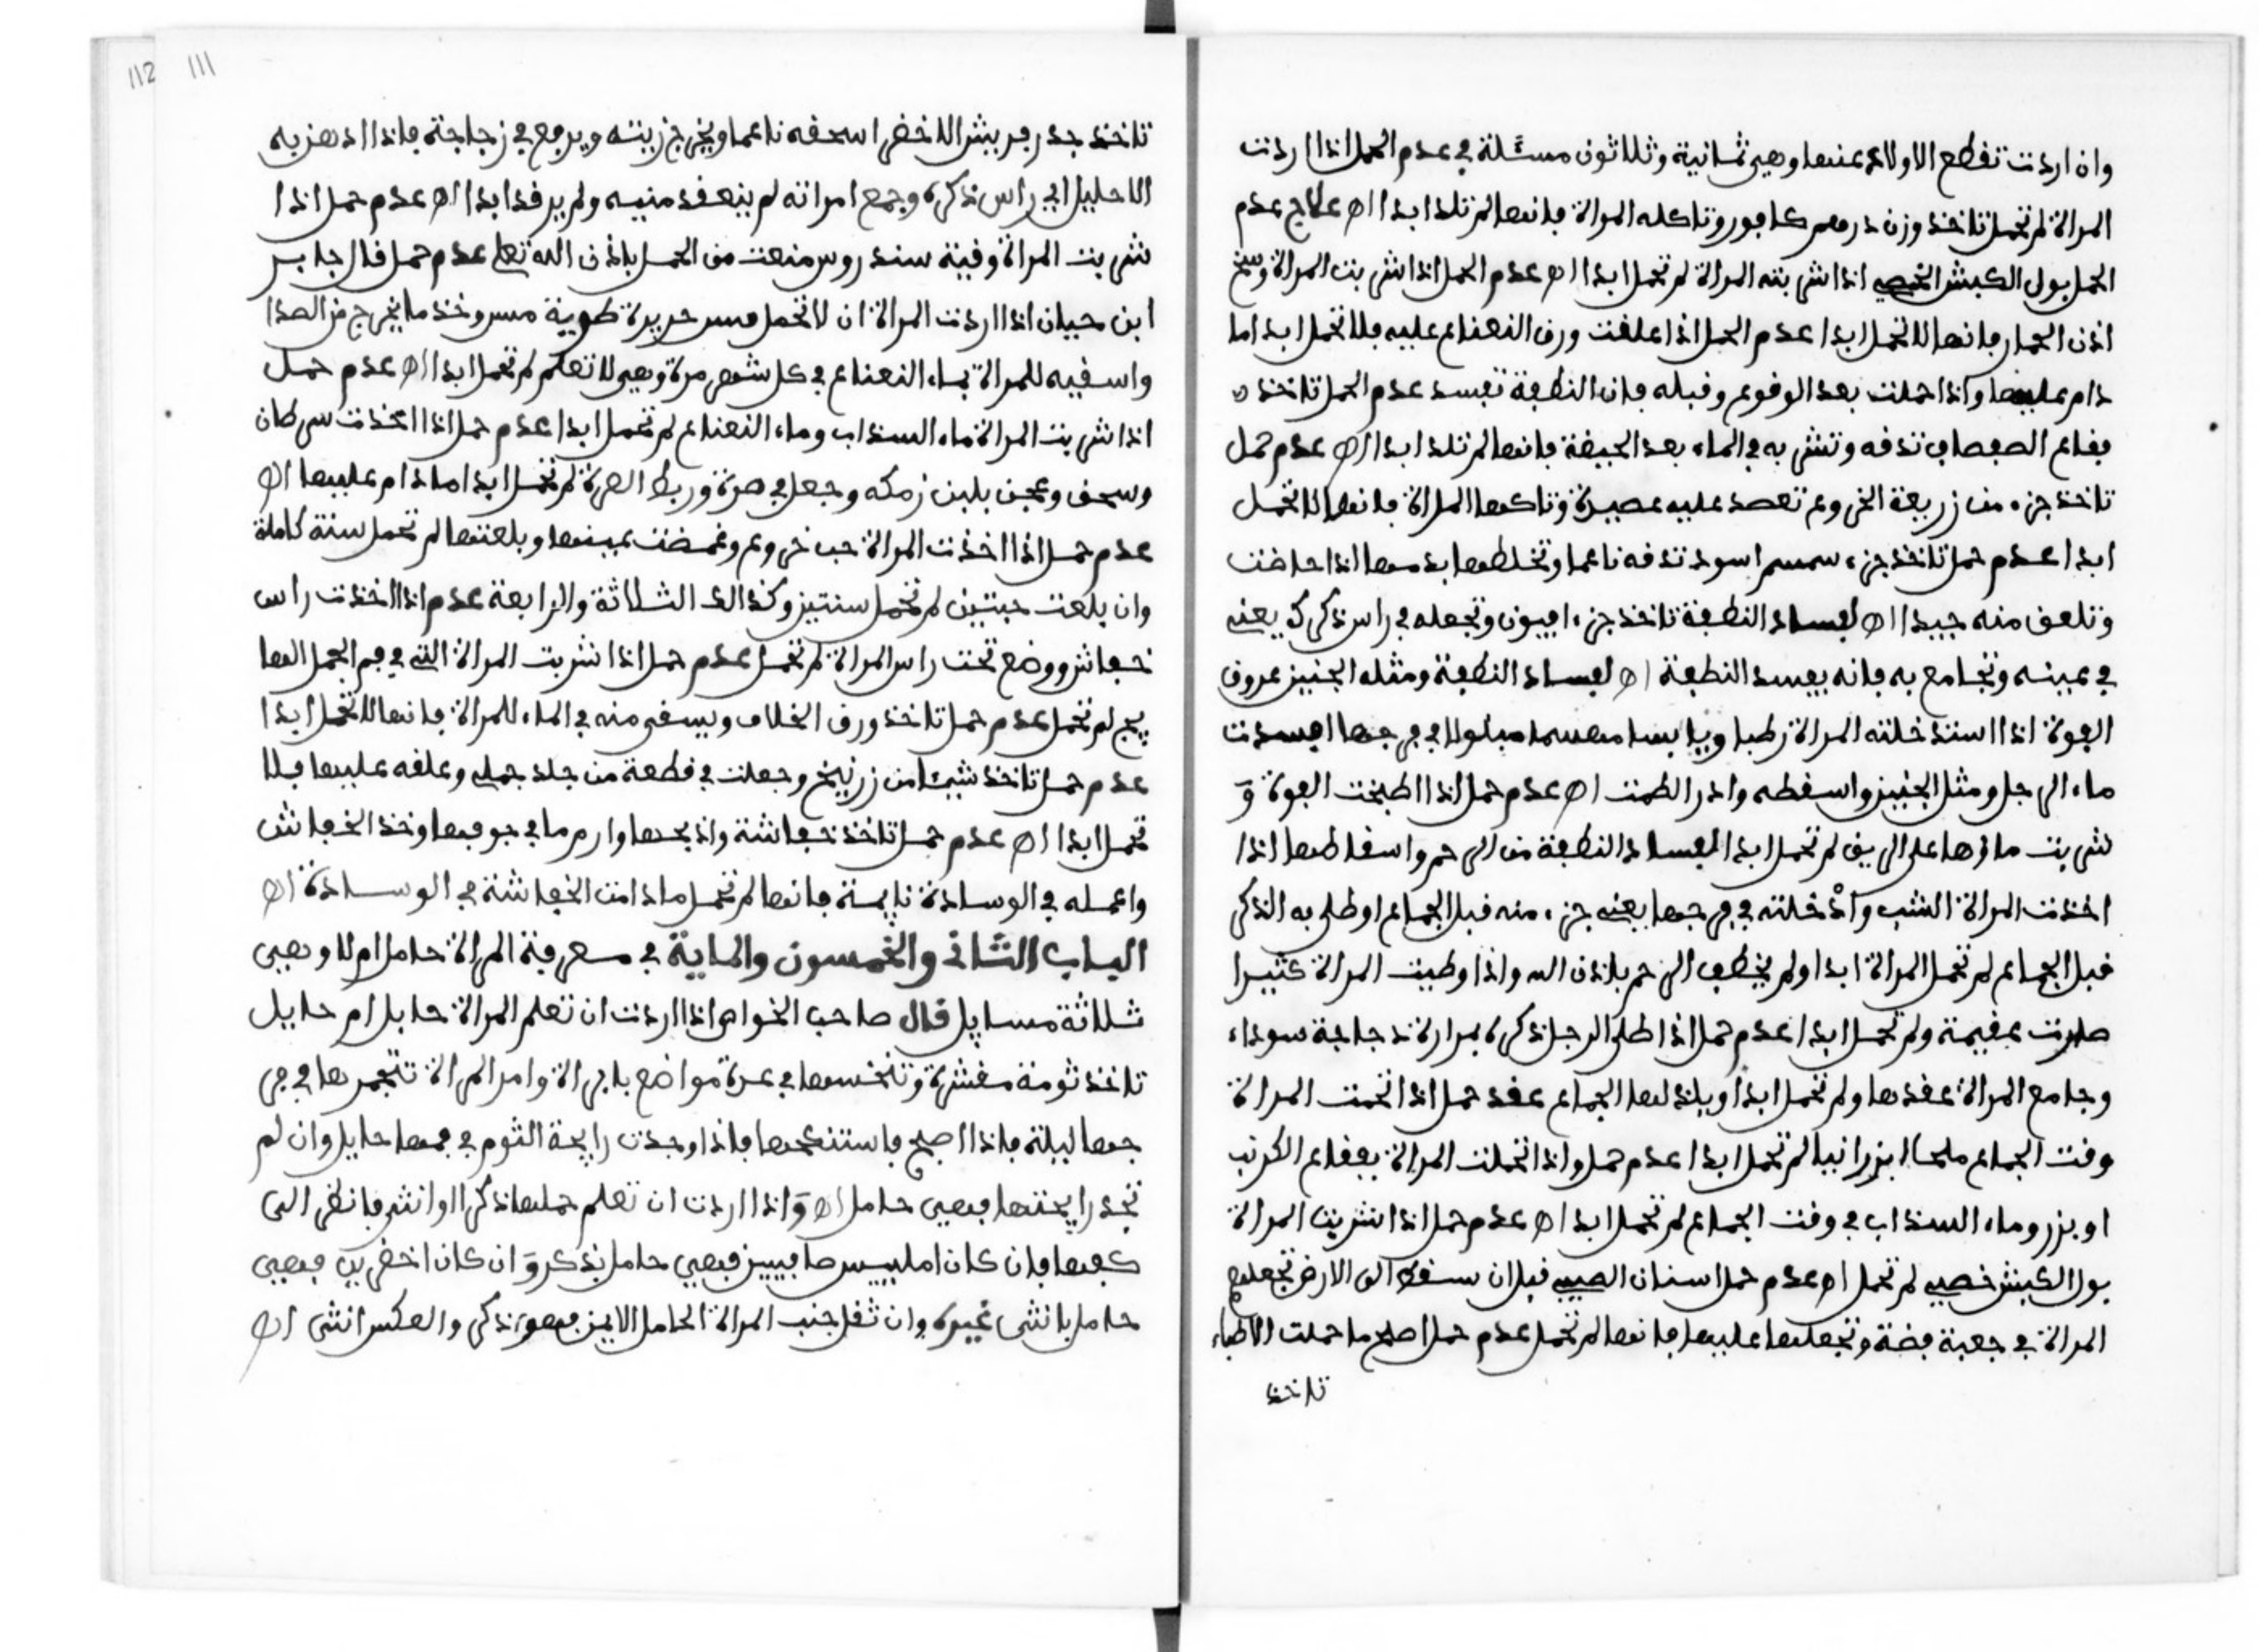 وان اردت تقطع الاولاد عنها وهي ثمانية وثلاثون مسئلة في عدم الحمل اذا اردت
المراة لم تحمل تاخذ وزن درهم كافور وتاكله المراة فانها لم تلد ابدا اه علاج عدم
الحمل بول الكبش الخصي اذا شربته المراة لم تحمل ابدا اه عدم الحمل اذا شربت المراة وسخ
اذن الحمار فانها لا تحمل ابدا عدم الحمل اذا علقت ورق النعناع عليه فلا تحمل ابدا ما
دام عليها واذا حملت بعد الوقوع وقبله فان النطفة تفسد عدم الحمل تاخذ
فقاع الصفصاف تدقه وتشربه في الماء بعد الحيضة فانها لم تلد ابدا اه عدم حمل
تاخذ جزء من زريعة الخروع تعصد عليه عصيدة وتاكلها المراة فانها لا تحمل
ابدا عدم حمل تاخذ جزء سمسم اسود تدقه ناعما وتخلطها بدمها اذا حاضت
وتلعق منه جيدا اه لفساد النطفة تاخذ جزء افيون وتجعله في راس ذكرك يعني
في عينه وتجامع به فانه يفسد النطفة اه لفساد النطفة ومثله الجنين عروق
الفوة اذا استدخلته المراة رطبا ويابسا مهشما مبلولا في فرجها افسدت
ماء الرجل ومثل الجنين واسقطه وادر الطمث اه عدم حمل اذا اطبخت الفوة و
شربت ماؤها على الريق لم تحمل ابدا لفساد النطفة من الرحم واسقاطها اذا
اخذت المراة الشب وأدخلته في فرجها يعني جزء منه قبل الجماع او طلى به الذكر
قبل الجماع لم تحمل المراة ابدا ولم يخطف الرحم باذن الله واذا وطيت المراة كثيرا
صارت عقيمة ولم تحمل ابدا عدم حمل اذا طلى الرجل ذكره بمرارة دجاجة سوداء
وجامع المراة عقدها ولم تحمل ابدا ويلذ لها الجماع عقد حمل اذا تحملت المراة
وقت الجماع ملحا ابزرانيا لم تحمل ابدا عدم حمل واذا تحملت المراة بفقاع الكرنب
او بزر وماء السذاب في وقت الجماع لم تحمل ابدا اه عدم حمل اذا شربت المراة
بول الكبش خصي لم تحمل اه عدم حمل اسنان الصبي قبل ان سقط الى الارض تجعلهم
المراة في جعبة فضة وتجعلها عليها فانها لم تحمل عدم حمل اصلح ما حملت الاطباء
تاخذ
112 111
تاخذ جدر بربيش الاخضر اسحقه ناعما ويخرج زيته ويرفع في زجاجة فاذا ادهن به
الاحليل اي راس ذكره وجمع امراته لم ينعقد منيه ولم يرقد ابدا اه عدم حمل اذا
شربت المراة وقية سندروس منعت من الحمل باذن الله تعلى عدم حمل قال جابر
ابن حيان اذا اردت المراة ان لا تحمل مس حديدة طويية مس وخذ ما يخرج من الصدا
واسقيه للمراة بماء النعناع في كل شهر مرة وهي لا تعلم لم تحمل ابدا اه عدم حمل
اذا شربت المراة ماء السذاب وماء النعناع لم تحمل ابدا عدم حمل اذا اخذت سرطان
وسحق وعجن بلبن رمكه وجعل في صرة وربط الصرة لم تحمل ابدا ما دام عليها اه
عدم حمل اذا اخذت المراة حب خروع وغمضت عينها وبلعتها لم تحمل سنة كاملة
وان بلعت حبتين لم تحمل سنتين وكذالك الثلاثة والرابعة عدم اذا اخذت راس
خفاش ووضع تحت راس المراة لم تحمل عدم حمل اذا شربت المراة التي في فم الجمل الها
يج لم تحمل عدم حمل تاخذ ورق الخلاف ويسقى منه في الماء للمراة فانها لا تحمل ابدا
عدم حمل تاخذ شيئا من زرنيخ وجعلت في قطعة من جلد جمل وعلقه عليها فلا
تحمل ابدا اه عدم حمل تاخذ خفاشة واذبحها وارم ما في جوفها وخذ الخفاش
واعمله في الوسادة نايمة فانها لم تحمل ما دامت الخفاشة في الوسادة اه
الباب الثاني والخمسون والماية في معرفة المراة حامل ام لا وهي
ثلاثة مسايل قال صاحب الخواص اذا اردت ان تعلم المراة حابل ام حايل
تاخذ ثومة مقشرة وتنخسها في عدة مواضع بابرة وامر المراة تتحمرها في فر
جها ليلة فاذا اصبح فاستنكهها فاذا وجدت رايحة الثوم في فمها حايل وان لم
تجد رايحتها فهي حامل اه واذا اردت ان تعلم حملها ذكرا او انثى فانظر الى
كفها فان كان املييس صافيين فهي حامل بذكر وان كان اخضرين فهي
حامل بانثى غيره وان ثقل جنب المراة الحامل الايمن فهو ذكر والعكس انثى اه